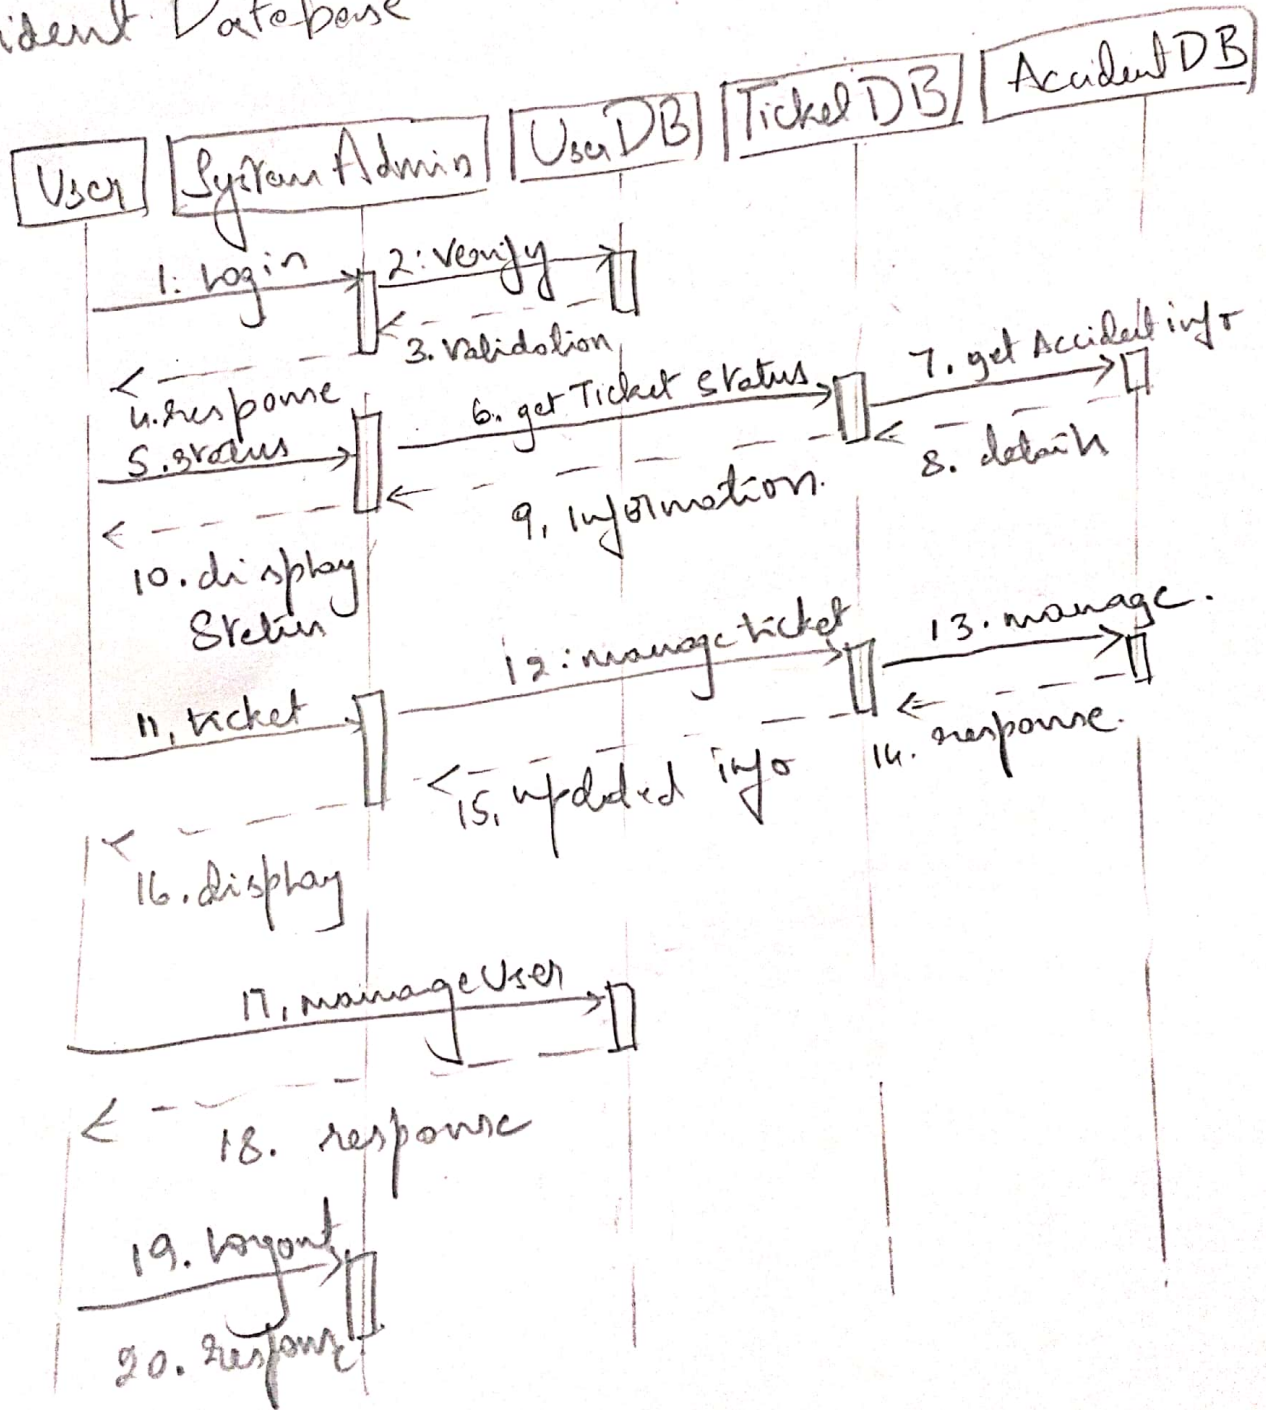 ident Database
User
System Admin
User DB
Ticket DB
Accident DB
1: Login
2: Verify
3. Validation
4. response
5. status
6. get Ticket Status
7. get Accident info
8. details
9, Information.
10. display
Status
11, ticket
12: manage ticket
13. manage.
14. response.
15, updated info
16. display
17, manage User
18. response
19. Logout
20. response